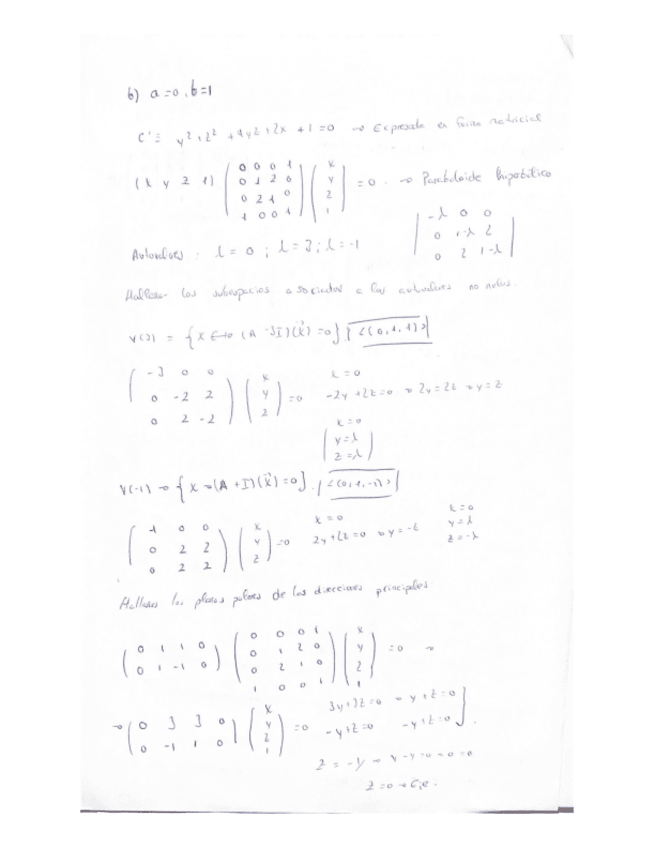 b) a=0, b=1
C' ≡ y² + z² + 4yz + 2x + 1 = 0 → Expresada en forma matricial
(x y z 1) (0 0 0 1 / 0 1 2 0 / 0 2 1 0 / 1 0 0 1) (x / y / z / 1) = 0 → Paraboloide hiperbólico
Autovalores: λ = 0 ; λ = 3 ; λ = -1 | -λ 0 0 / 0 1-λ 2 / 0 2 1-λ |
Hallamos los subespacios asociados a los autovalores no nulos.
V(3) = { x ↔ (A - 3I)(x⃗) = 0 } <(0,1,1)>
(-3 0 0 / 0 -2 2 / 0 2 -2) (x / y / z) = 0
x = 0
-2y + 2z = 0 → 2y = 2z → y = z
x = 0
y = λ
z = λ
V(-1) → { x → (A + I)(x⃗) = 0 }. <(0,1,-1)>
(1 0 0 / 0 2 2 / 0 2 2) (x / y / z) = 0
x = 0
2y + 2z = 0 → y = -z
x = 0
y = λ
z = -λ
Hallamos los planos polares de las direcciones principales
(0 1 1 0 / 0 1 -1 0) (0 0 0 1 / 0 1 2 0 / 0 2 1 0 / 1 0 0 1) (x / y / z / 1) = 0 →
→ (0 3 3 0 / 0 -1 1 0) (x / y / z / 1) = 0
3y + 3z = 0 → y + z = 0
-y + z = 0 -y + z = 0 }.
z = -y → y - y = 0 → 0 = 0
z = 0 →